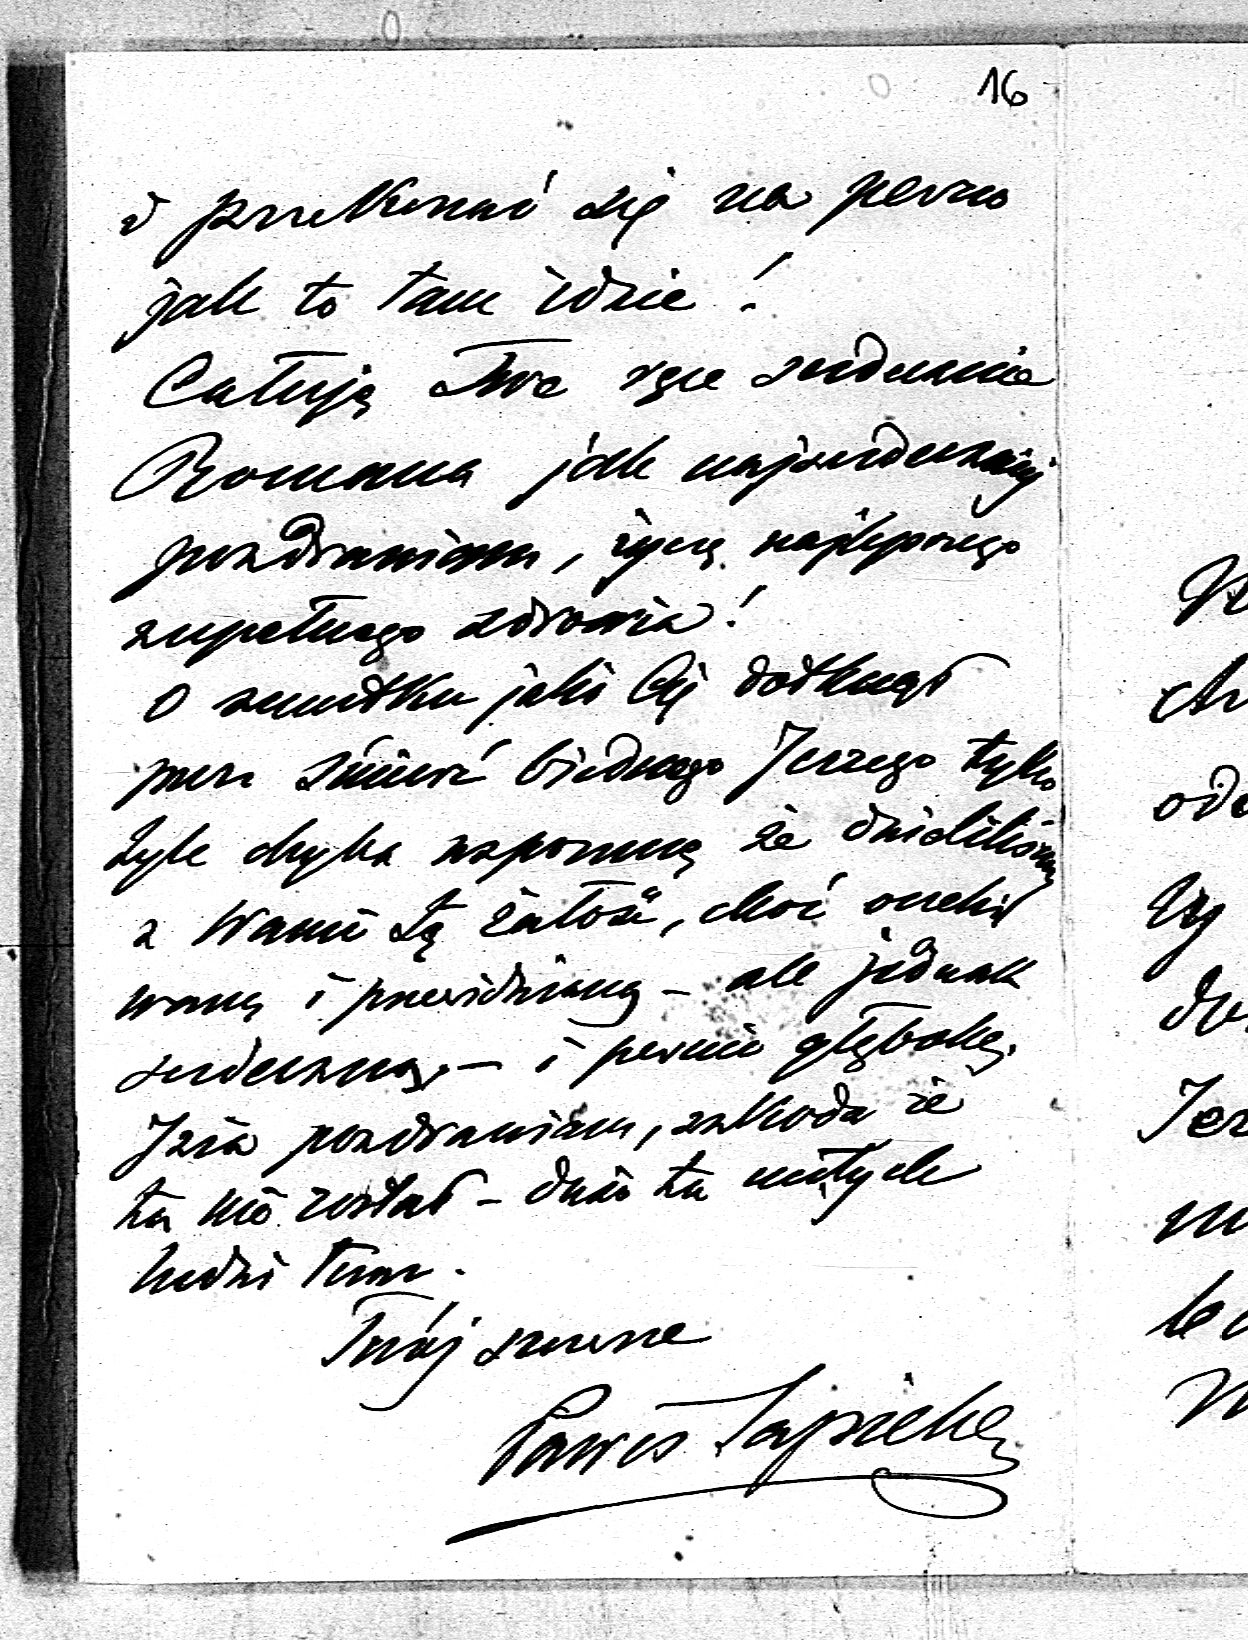 16
i przekonać się na pewno
jak to tam idzie!
Całuję Twe ręce serdecznie
Romana jak najserdeczniej
pozdrawiam, życzę najlepszego
zupełnego zdrowia!
O smutku jaki Cię dotknął
przez śmierć biednego Jerzego tylko
tyle chyba wspomnę że dzieliliśmy
z Wami tę żałość, choć oczeki
waną i przewidzianą – ale jednak
serdeczną, – i pewnie głęboką.
Józia pozdrawiam, szkoda że
tu nie został – dużo tu miłych
ludzi teraz.
Twój szczerze
Paweł Sapieha
Jer